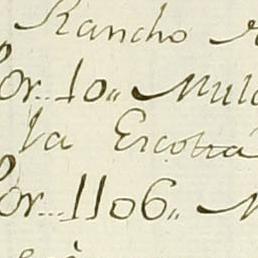 Rancho
Por... 10,, Mula
la Escolta
Por... 1106,,